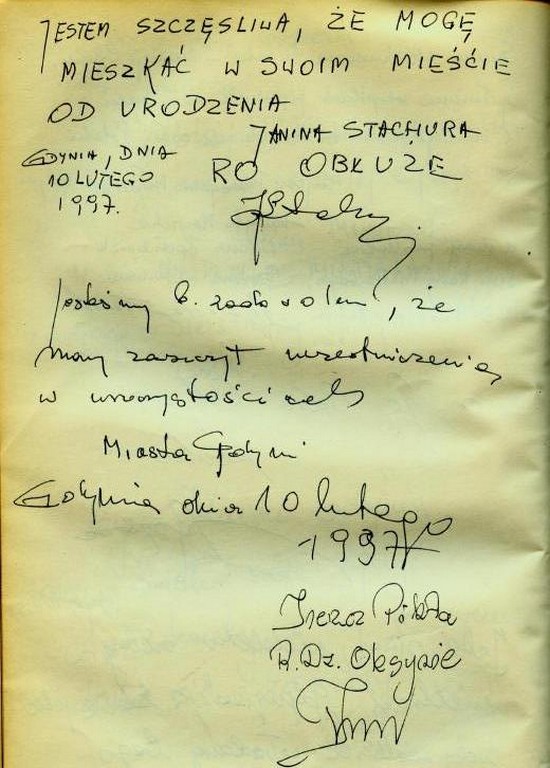 JESTEM SZCZĘŚLIWA, ŻE MOGĘ
MIESZKAĆ W SWOIM MIEŚCIE
OD URODZENIA
JANINA STACHURA
GDYNIA, DNIA
10 LUTEGO
1997.
RO OBŁUŻE
Jesteśmy b. zadowoleni, że
mamy zaszczyt uczestniczenia
w uroczystościach
Miasta Gdyni
Gdynia dnia 10 lutego
1997
R. Dz. Oksywie